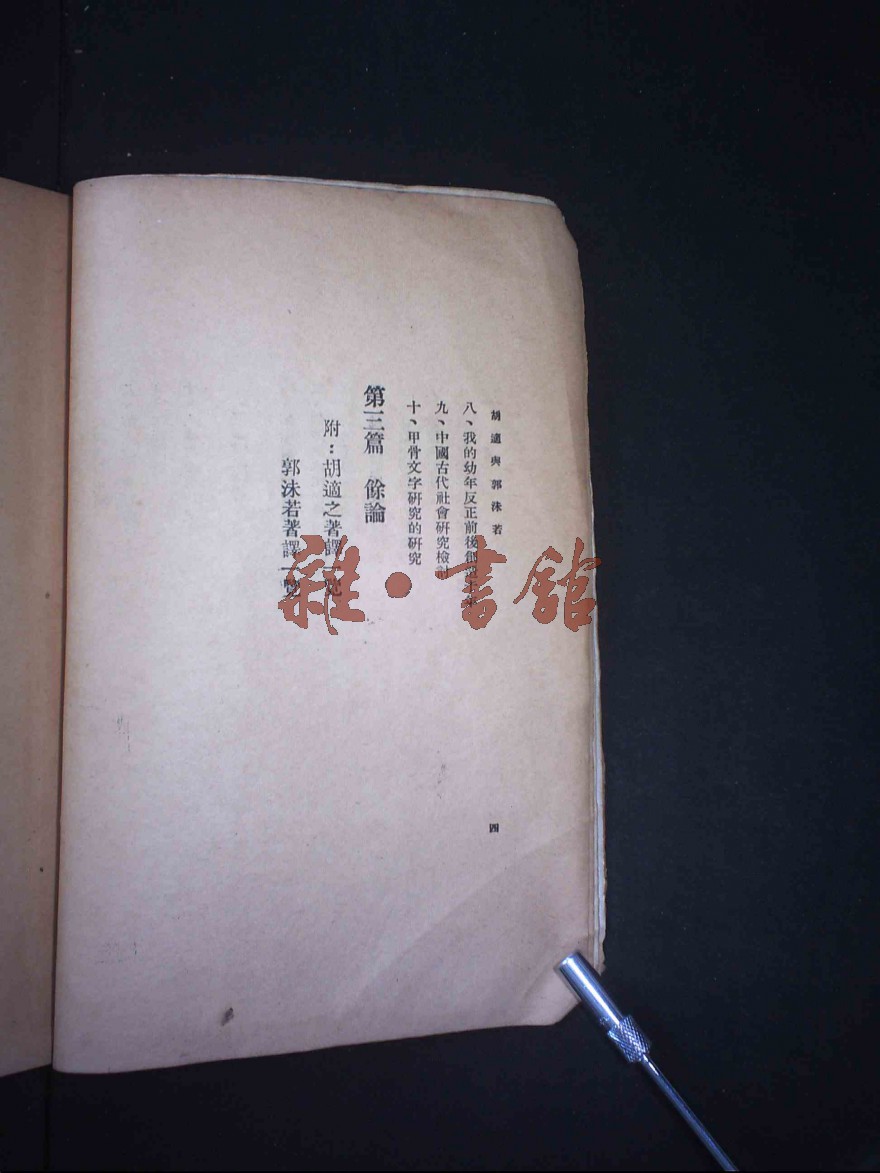 胡適與郭沫若
八、我的幼年反正前後創造十年
九、中國古代社會研究檢討
十、甲骨文字研究的研究
第三篇 餘論
附：胡適之著譯一覽
郭沫若著譯一覽
四
雜·書館